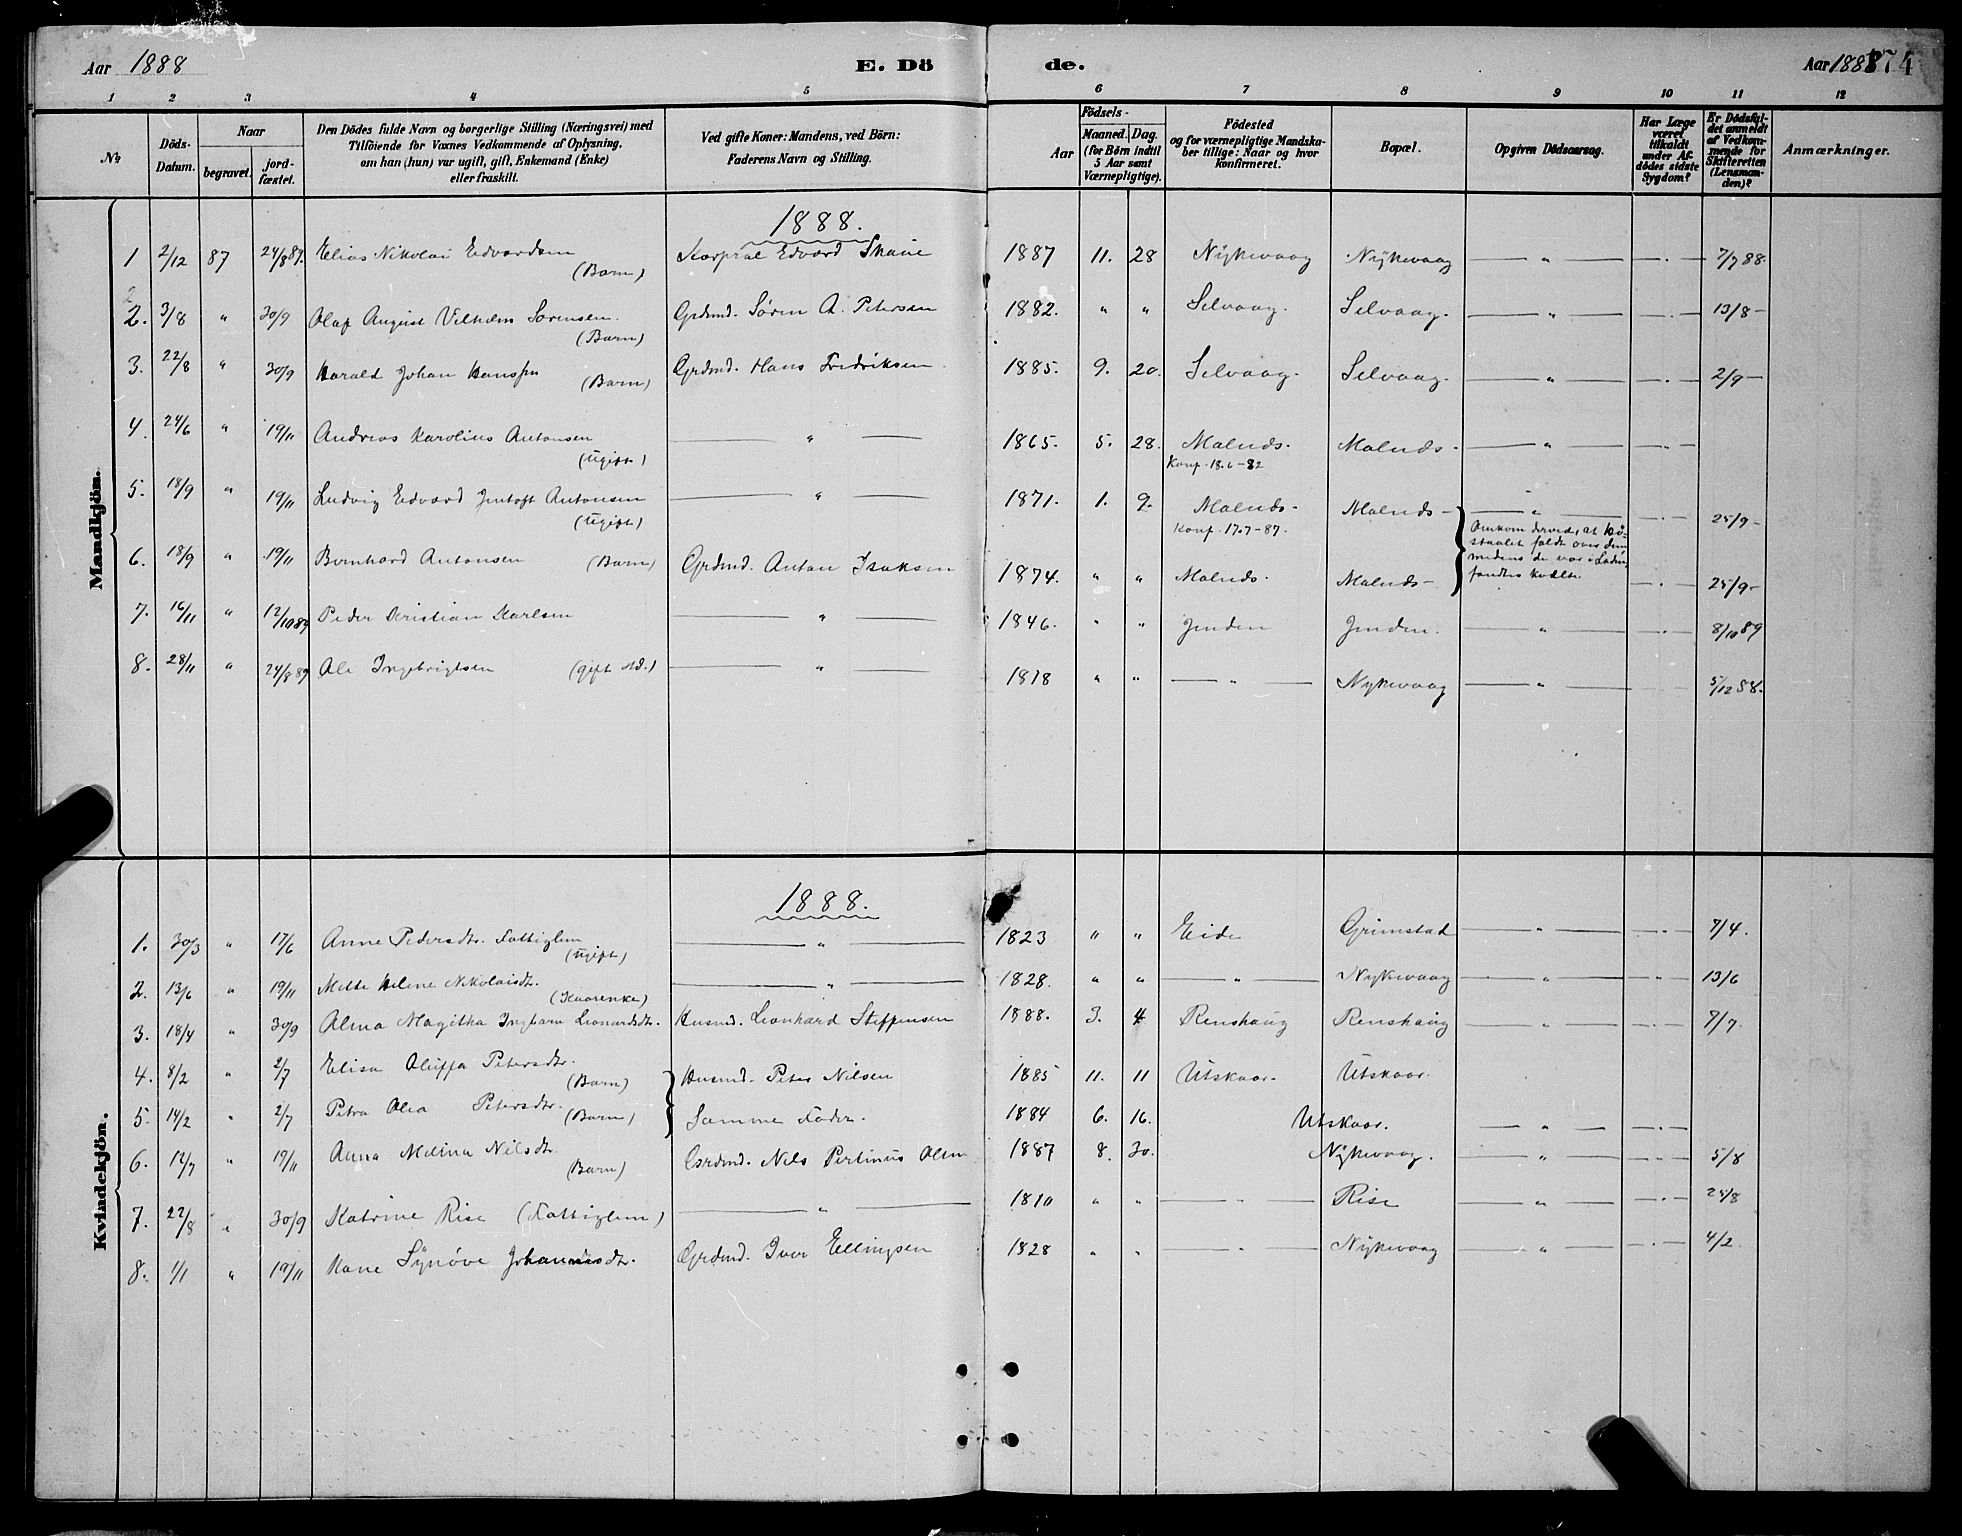 Aar 1888 E. Dö de. Aar 1888 174
1 2 3 4 5 6 7 8 9 10 11 12
№ Döds-Datum. Naar begravet. jord-fæstet. Den Dödes fulde Navn og borgerlige Stilling (Næringsvei) med Tilföiende for Voxnes Vedkommende af Oplysning, om han (hun) var ugift, gift, Enkemand (Enke) eller fraskilt. Ved gifte Koner: Mandens, ved Börn: Faderens Navn og Stilling. Födsels- Aar Maaned. Dag. (for Børn indtil 5 Aar samt Værnepligtige). Födested og for værnepligtige Mandskaber tillige: Naar og hvor konfirmeret. Bopæl. Opgiven Dödsaarsag. Har Læge været tilkaldt under Afdödes sidste Sygdom? Er Dödsfaldet anmeldt af Vedkommende for Skifteretten (Lensmanden)? Anmærkninger.
Mandkjön.
1888.
1 2/12 87 24/8 89. Elias Nikolai Edvardsen (Barn) Korpral Edvard Skaue 1887 11. 28 Nykvaag Nykvaag — " — — . — 7/7 88.
2. 3/8 " 30/9 Olaf August Vilhelm Sørensen. (Barn) Grdmd. Søren A. Petersen 1882. " " Selvaag. Selvaag. — " — — . — 13/8 —
3. 22/8 " 30/9 Harald Johan Hanssen (Barn) Grdmd. Hans Fredriksen. 1885. 9. 20. Selvaag. Selvaag. — " — — . — 2/9 —
4. 24/6 " 19/11 Andreas Karolius Antonsen (Ugift) — " — 1865. 5. 28. Malnes. Konf. 18.6-82 Malnes. — " — — . —
5. 18/9 " 19/11 Ludvig Edvard Jentoft Antonsen (Ugift) — " — 1871. 1. 9. Malnes. Konf. 17.7-87. Malnes — " — — . — 25/9 —
Omkom derved, at
faldt over dem
medens de var i Laden
fandtes kvalte.
6. 18/9 " 19/11 Bernhard Antonsen (Barn) Grdmd. Anton Isaksen 1874. " " Malnes. Malnes — — . — 25/9 —
7. 16/11 " 12/10 89 Peder Kristian Karlsen — " — 1846. " " Jenden Jenden. — " — — . — 8/10 89
8. 28/11 " 24/8 89 Ole Ingebrigtsen (gift Md.) — " — 1818 " " — " — Nykvaag — " — 5/12 88.
Kvindekjön.
1888.
1. 30/3 " 17/6 Anne Pedersdtr. Fattiglem (Ugift) — " — 1823 " " Eide Grimstad — " — — . — 7/4.
2. 13/6 " 19/11 Mette Helene Nikolaisdtr. (Kaarenke) — " — 1828. " " — " — Nykvaag — " — — " — 13/6
3. 18/4 " 30/9 Alma Magitha Ingbarn Leonardsdtr. Husmd. Leonhard Steffensen 1888. 3. 4 Renshaug Renshaug — " — — . — 7/7.
4. 8/2 " 2/7 Elisa Oluffa Petersdtr. (Barn) Husmd. Peter Nilsen 1885 11. 11 Utskaar. Utskaar.
5. 14/2 " 2/7 Petra Olea Petersdtr. (Barn) Samme Fader. 1884 6. 16. Utskaar. — " — — . —
6. 12/7 " 19/11 Anna Melina Nilsdtr. (Barn) Grdmd. Nils Pertinus Olsen 1887 8. 30. Nykvaag. — " — — . — 5/8
7. 22/8 " 30/9 Katrine Rise (Fattiglem) — " — 1810 " " — " — Rise — " — — . — 25/8
8. 1/1 " 19/11 Kone Synøve Johannesdtr. Grdmd. Iver Ellingsen 1828 " " — " — Nykvaag — " — — . — 4/2